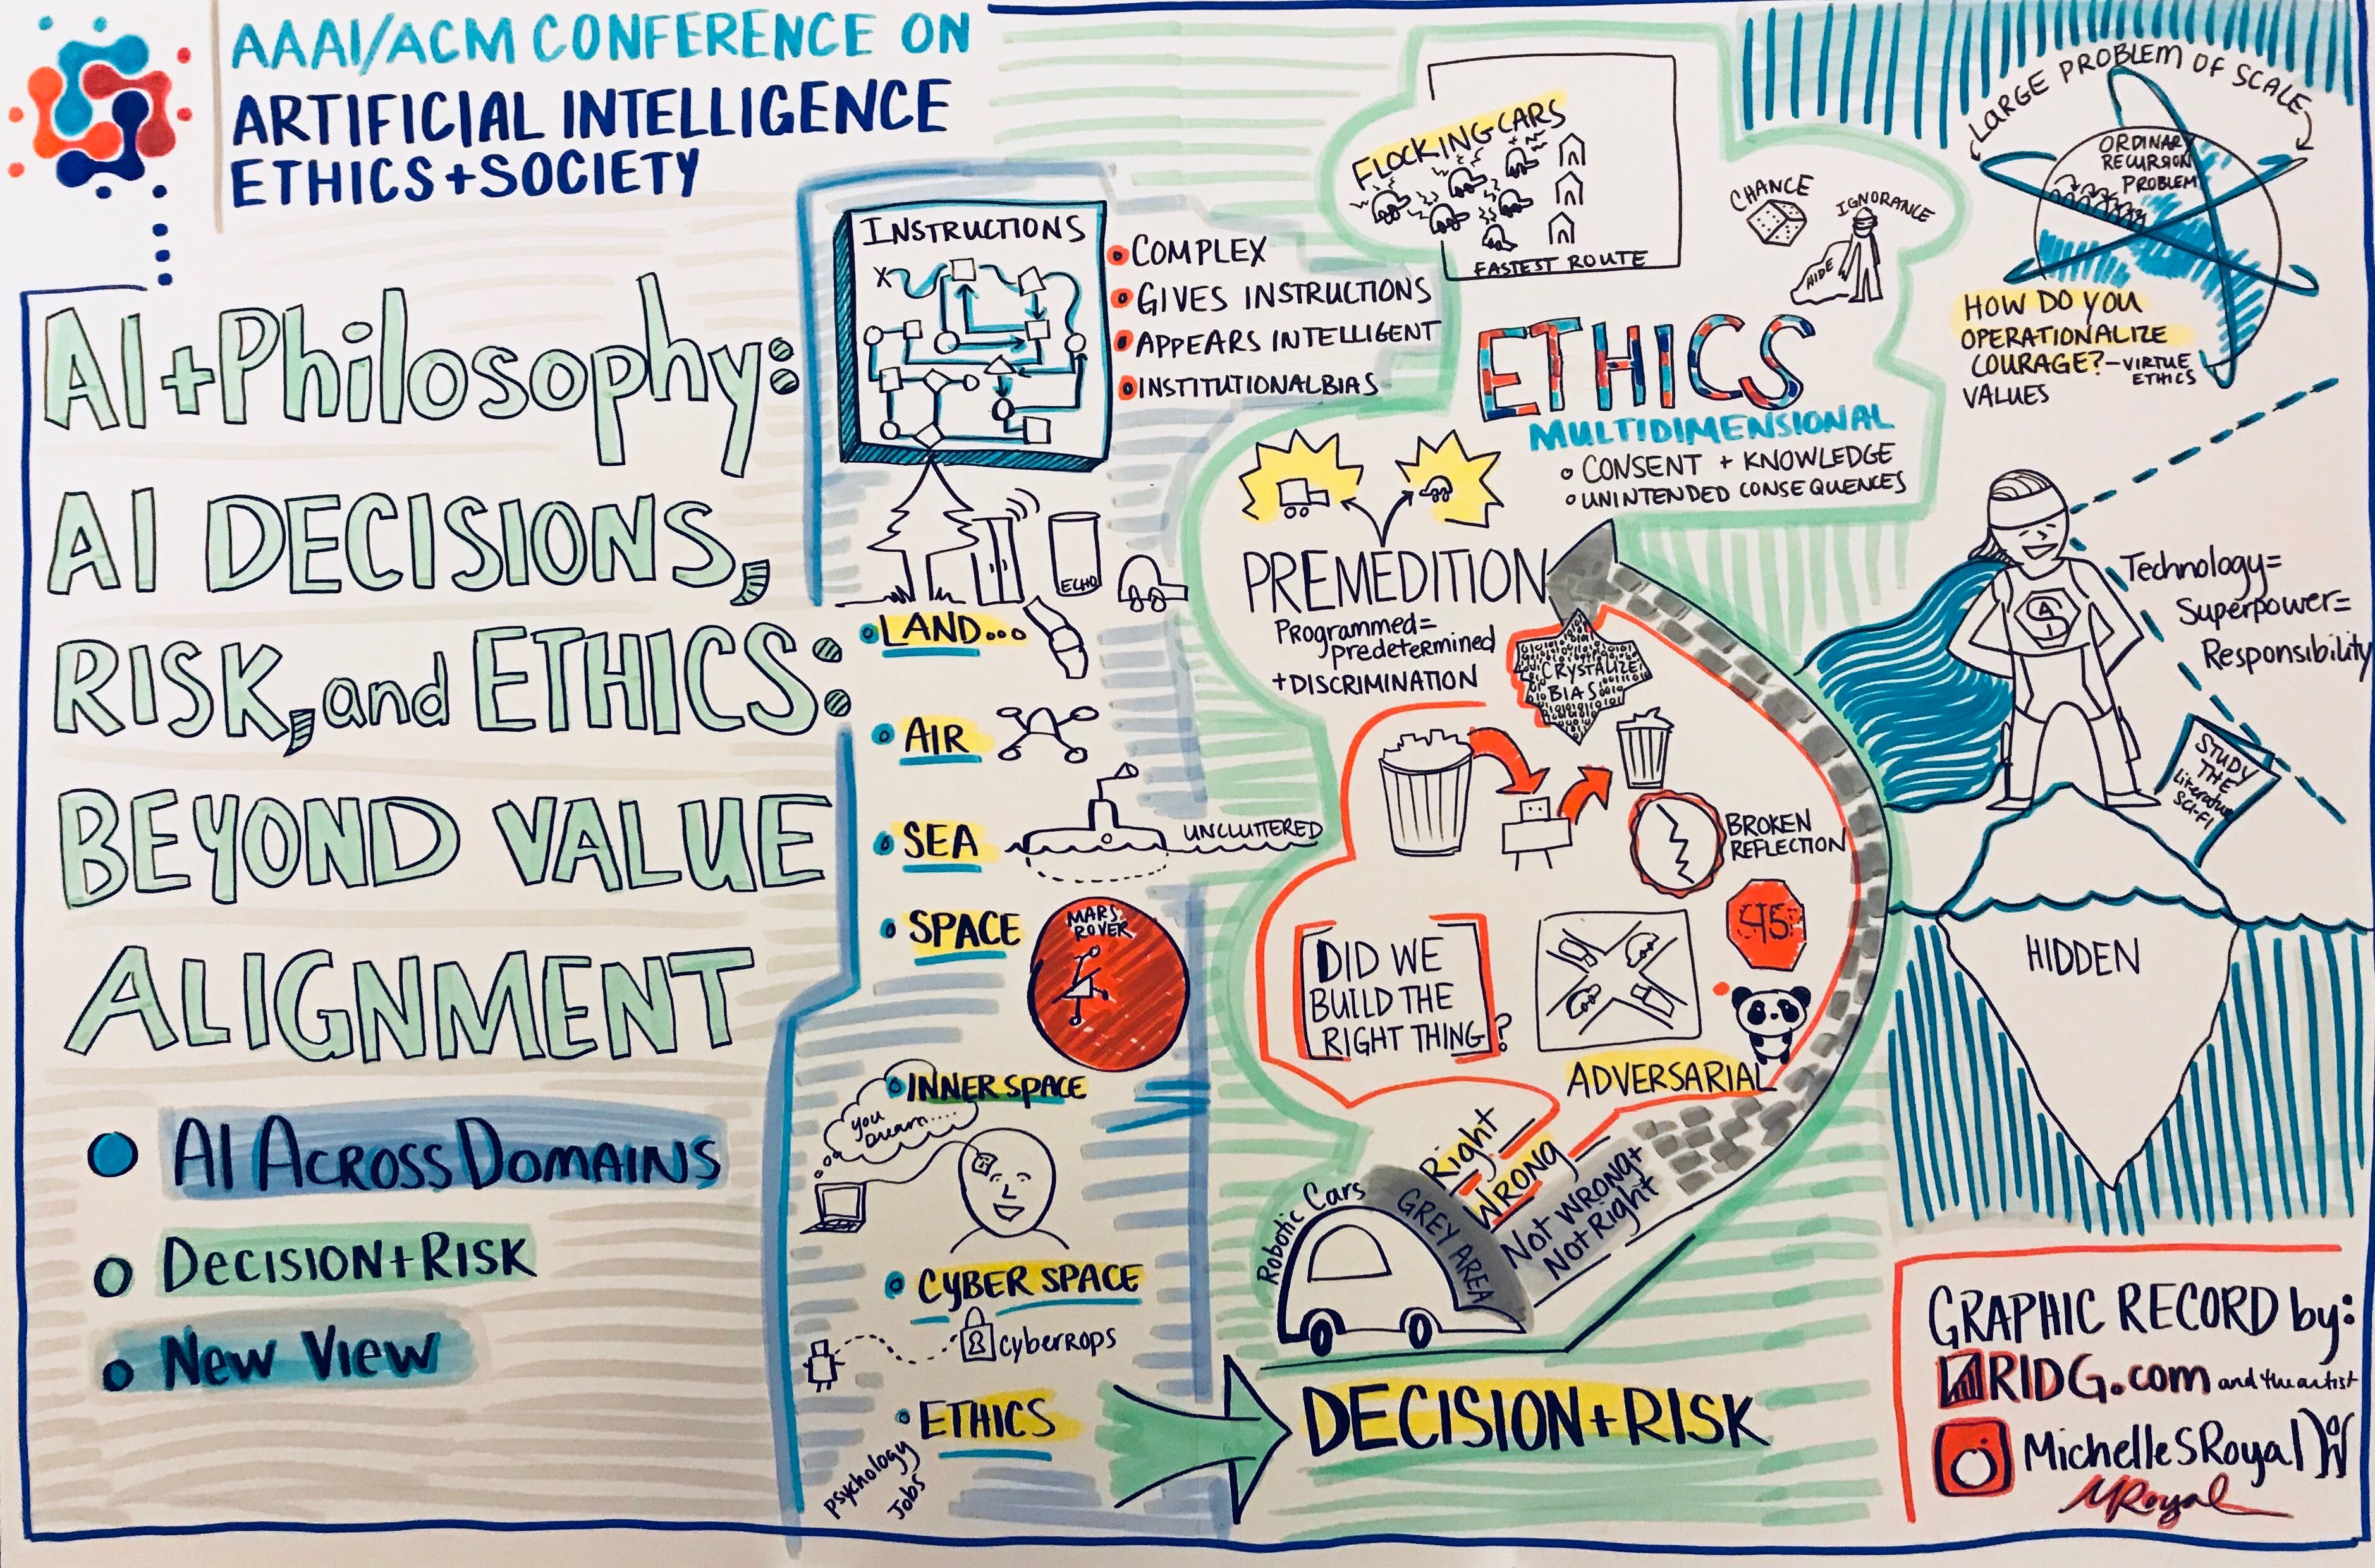 AAAI/ACM CONFERENCE ON
ARTIFICIAL INTELLIGENCE
ETHICS+SOCIETY
AI+Philosophy:
AI DECISIONS,
RISK, and ETHICS:
BEYOND VALUE
ALIGNMENT
AI ACROSS DOMAINS
DECISION+RISK
NEW VIEW
INSTRUCTIONS
X
COMPLEX
GIVES INSTRUCTIONS
APPEARS INTELLIGENT
INSTITUTIONAL BIAS
ECHO
LAND...
AIR
SEA
UNCLUTTERED
SPACE
MARS
ROVER
INNER SPACE
you
Dream....
CYBER SPACE
CyberROPS
ETHICS
Psychology
Jobs
FLOCKING CARS
FASTEST ROUTE
CHANCE
IGNORANCE
HIDE
ETHICS
MULTIDIMENSIONAL
CONSENT + KNOWLEDGE
UNINTENDED CONSEQUENCES
PREMEDITION
Programmed=
predetermined
+DISCRIMINATION
CRYSTALIZE
BIAS
BROKEN
REFLECTION
DID WE
BUILD THE
RIGHT THING?
45
ADVERSARIAL
Right
WRONG
Not WRONG+
Not Right
GREY AREA
Robotic Cars
DECISION+RISK
LARGE PROBLEM OF SCALE
ORDINARY
RECURSION
PROBLEM
HOW DO YOU
OPERATIONALIZE
COURAGE?-VIRTUE
ETHICS
VALUES
Technology=
Superpower=
Responsibility
STUDY
THE
Literature
SCI-FI
HIDDEN
GRAPHIC RECORD by:
RIDG.com and the artist
MichelleSRoyal
MRoyal